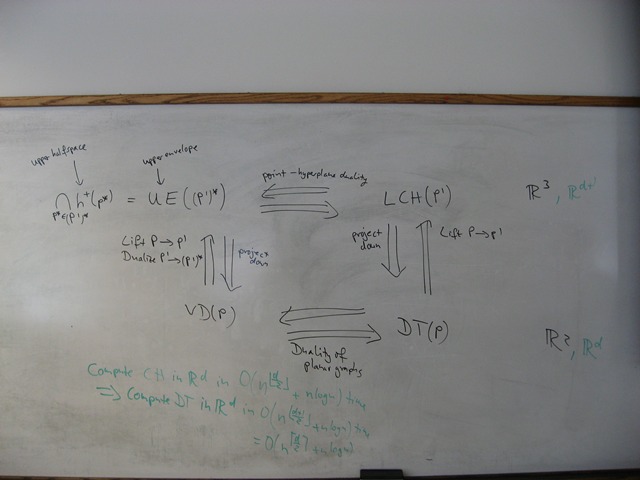 upper halfspace
upper envelope
⋂ h⁺(p*) = UE((P')*)
p*∈(P')*
point-hyperplane duality
LCH(P')
ℝ³, ℝᵈ⁺¹
Lift P → P'
Dualize P' → (P')*
project down
project down
Lift P → P'
VD(P)
DT(P)
ℝ², ℝᵈ
Duality of
planar graphs
Compute CH in ℝᵈ in O(n^⌊d/2⌋ + n log n) time
⇒ Compute DT in ℝᵈ in O(n^⌊(d+1)/2⌋ + n log n) time
= O(n^⌈d/2⌉ + n log n)